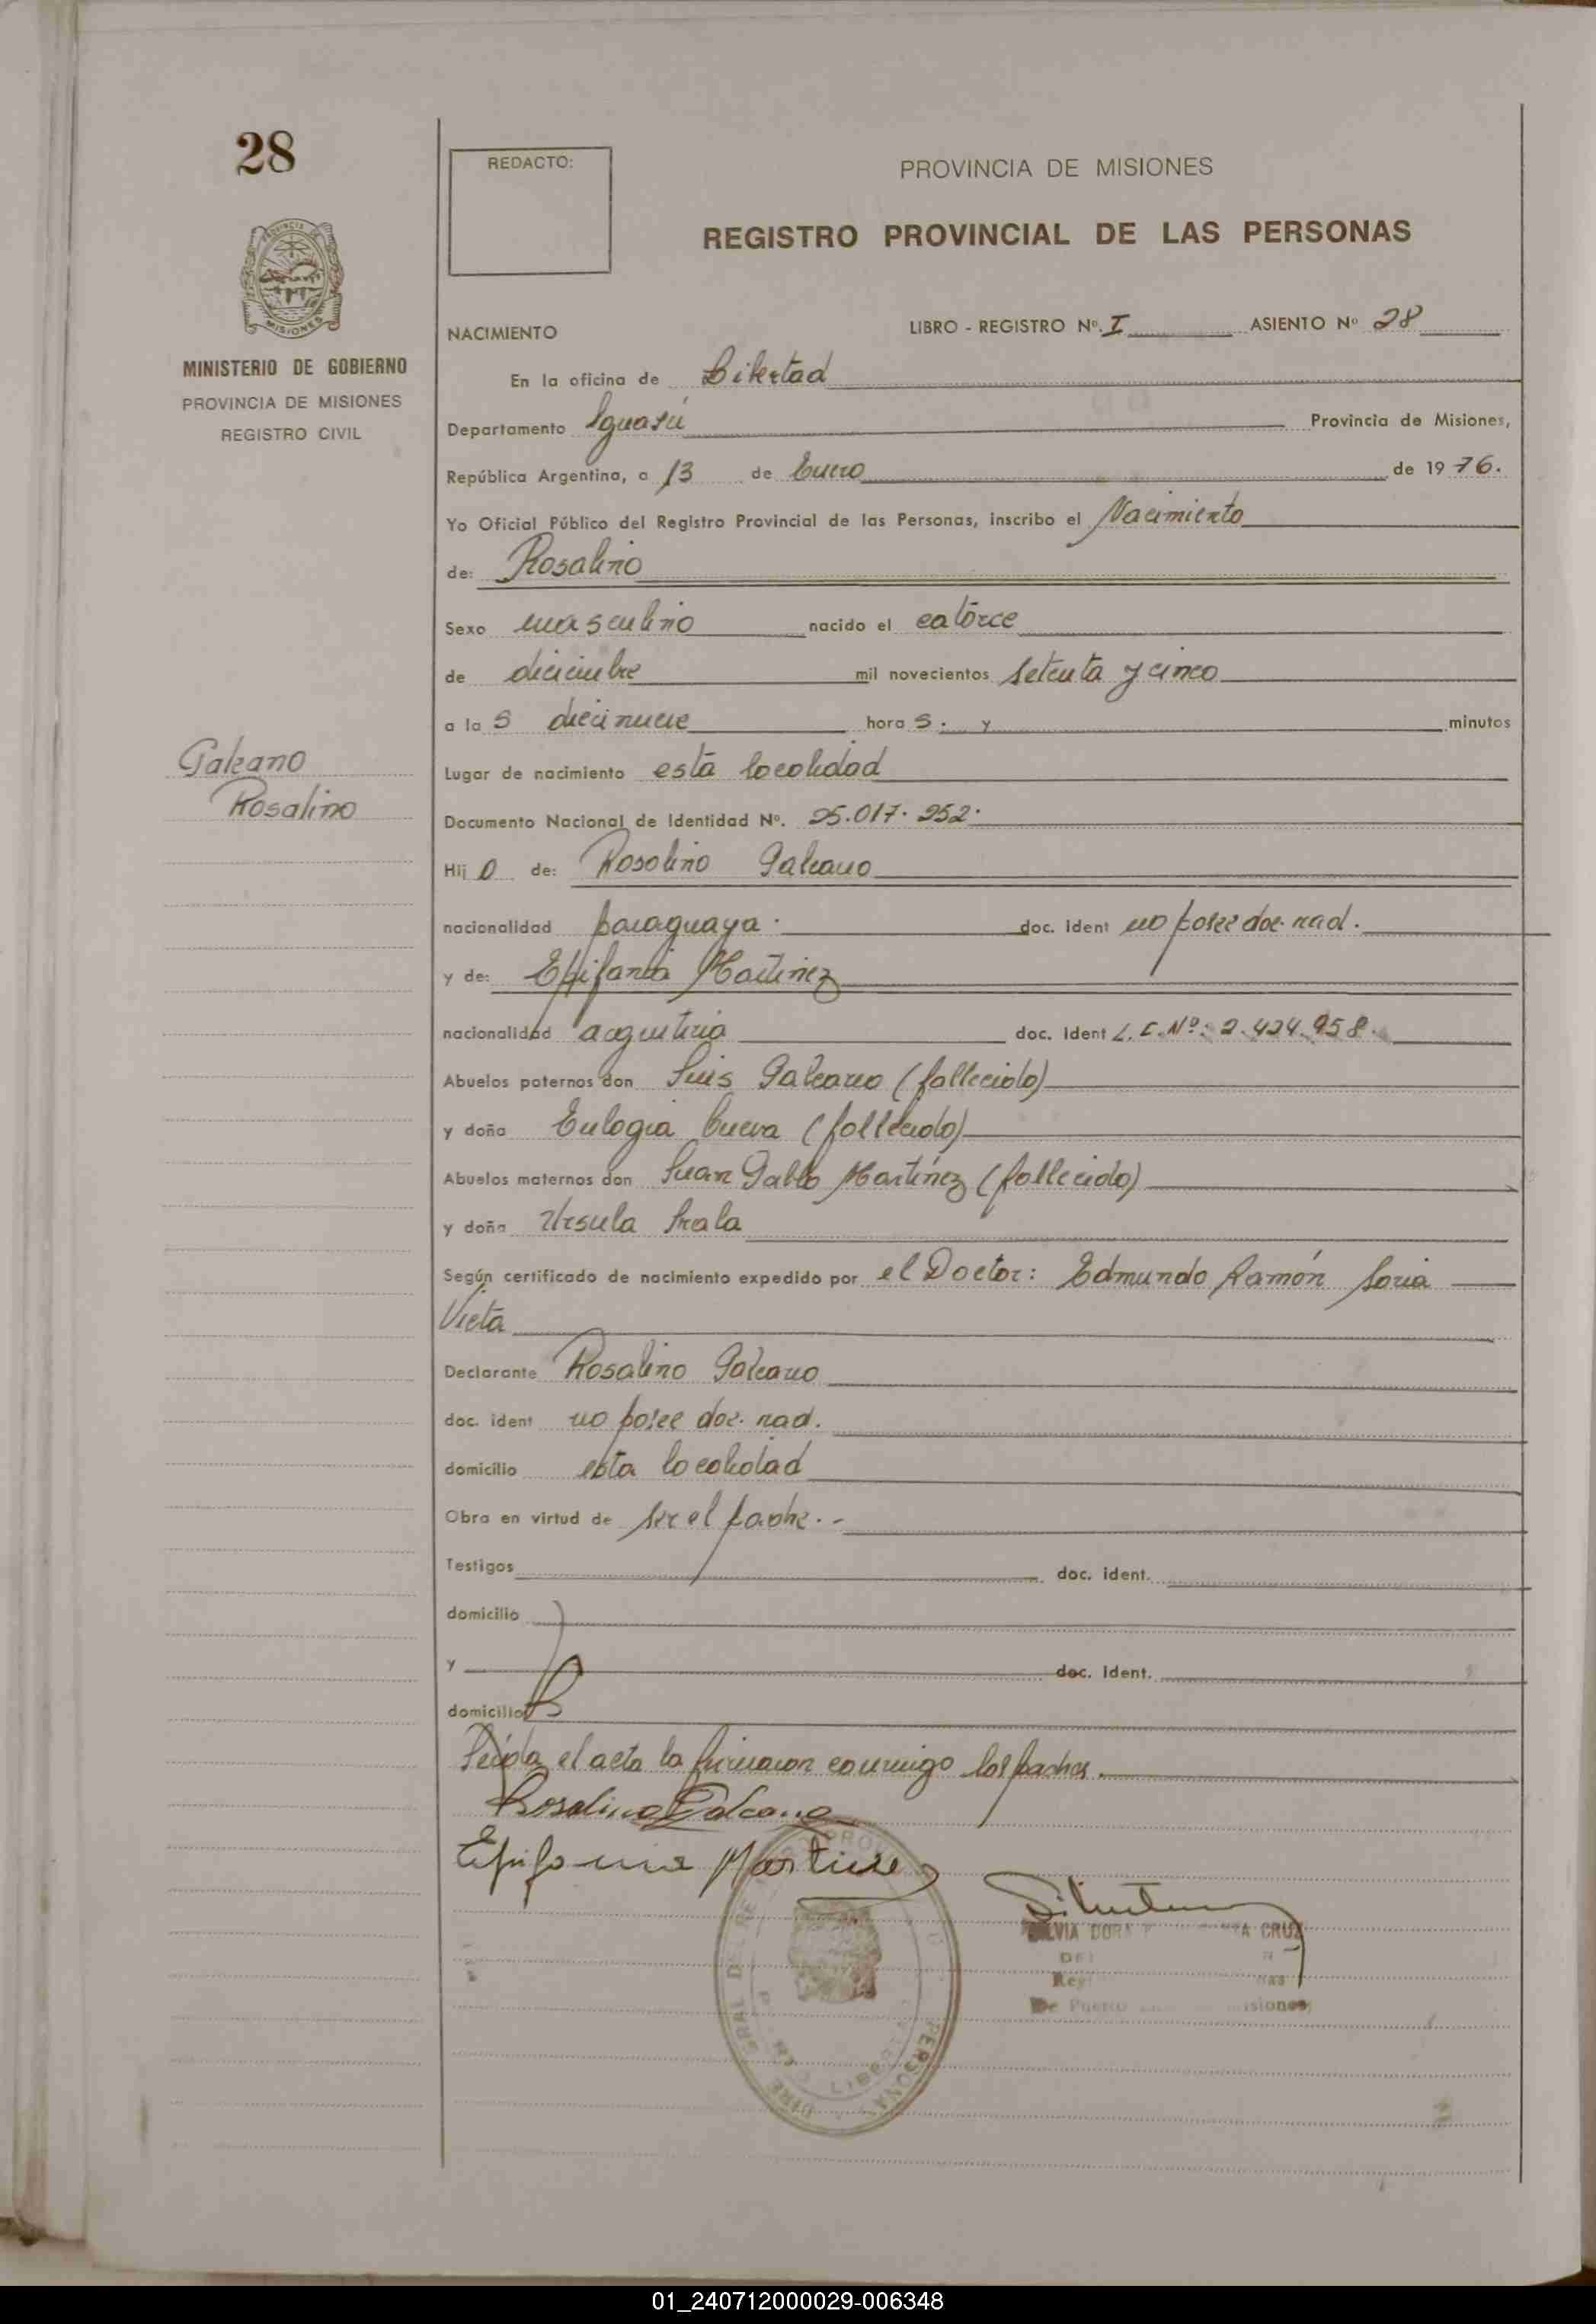 28
REDACTO:
PROVINCIA DE MISIONES
REGISTRO PROVINCIAL DE LAS PERSONAS
MISIONES
MINISTERIO DE GOBIERNO
PROVINCIA DE MISIONES
REGISTRO CIVIL
NACIMIENTO LIBRO - REGISTRO Nº. I ASIENTO Nº 28
En la oficina de Libertad
Departamento Iguazú Provincia de Misiones,
República Argentina, a 13 de Enero de 1976.
Yo Oficial Público del Registro Provincial de las Personas, inscribo el Nacimiento
de: Rosalino
Sexo masculino nacido el catorce
de diciembre mil novecientos setenta y cinco
a las diecinueve horas. y minutos
Galeano
Lugar de nacimiento esta localidad
Rosalino
Documento Nacional de Identidad Nº. 25.017.252.
Hijo de: Rosalino Galeano
nacionalidad paraguaya. doc. Ident no posee doc. nad.
y de: Epifania Martinez
nacionalidad argentina doc. Ident L.C.Nº: 2.424.958.
Abuelos paternos don Luis Galeano (fallecido)
y doña Eulogia Cueva (fallecido)
Abuelos maternos don Juan Pablo Martínez (fallecido)
y doña Ursula Irala
Según certificado de nacimiento expedido por el Doctor: Edmundo Ramón Soria
Vieta
Declarante Rosalino Galeano
doc. ident no posee doc. nad.
domicilio esta localidad
Obra en virtud de ser el padre.-
Testigos doc. ident.
domicilio
y doc. Ident.
domicilio
Leída el acta la firmaron conmigo los padres.
Rosalino Galeano
Epifania Martinez
SILVIA DORA CRUZ
De Puerto
LIBERTAD
PERSONAS
01_240712000029-006348